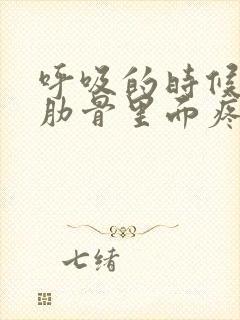 呼吸的时候
肋骨里面疼
七绪